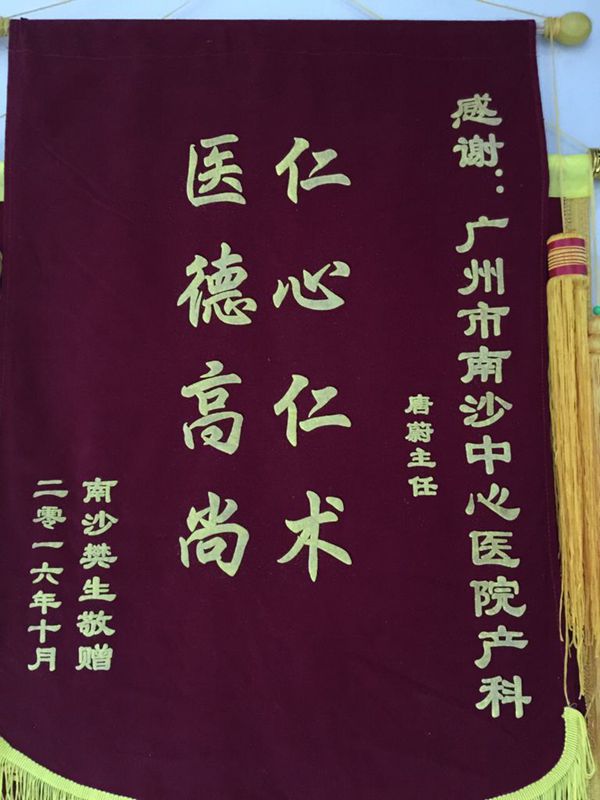 感谢：广州市南沙中心医院产科
唐蔚主任
仁心仁术
医德高尚
南沙樊生敬赠
二零一六年十月